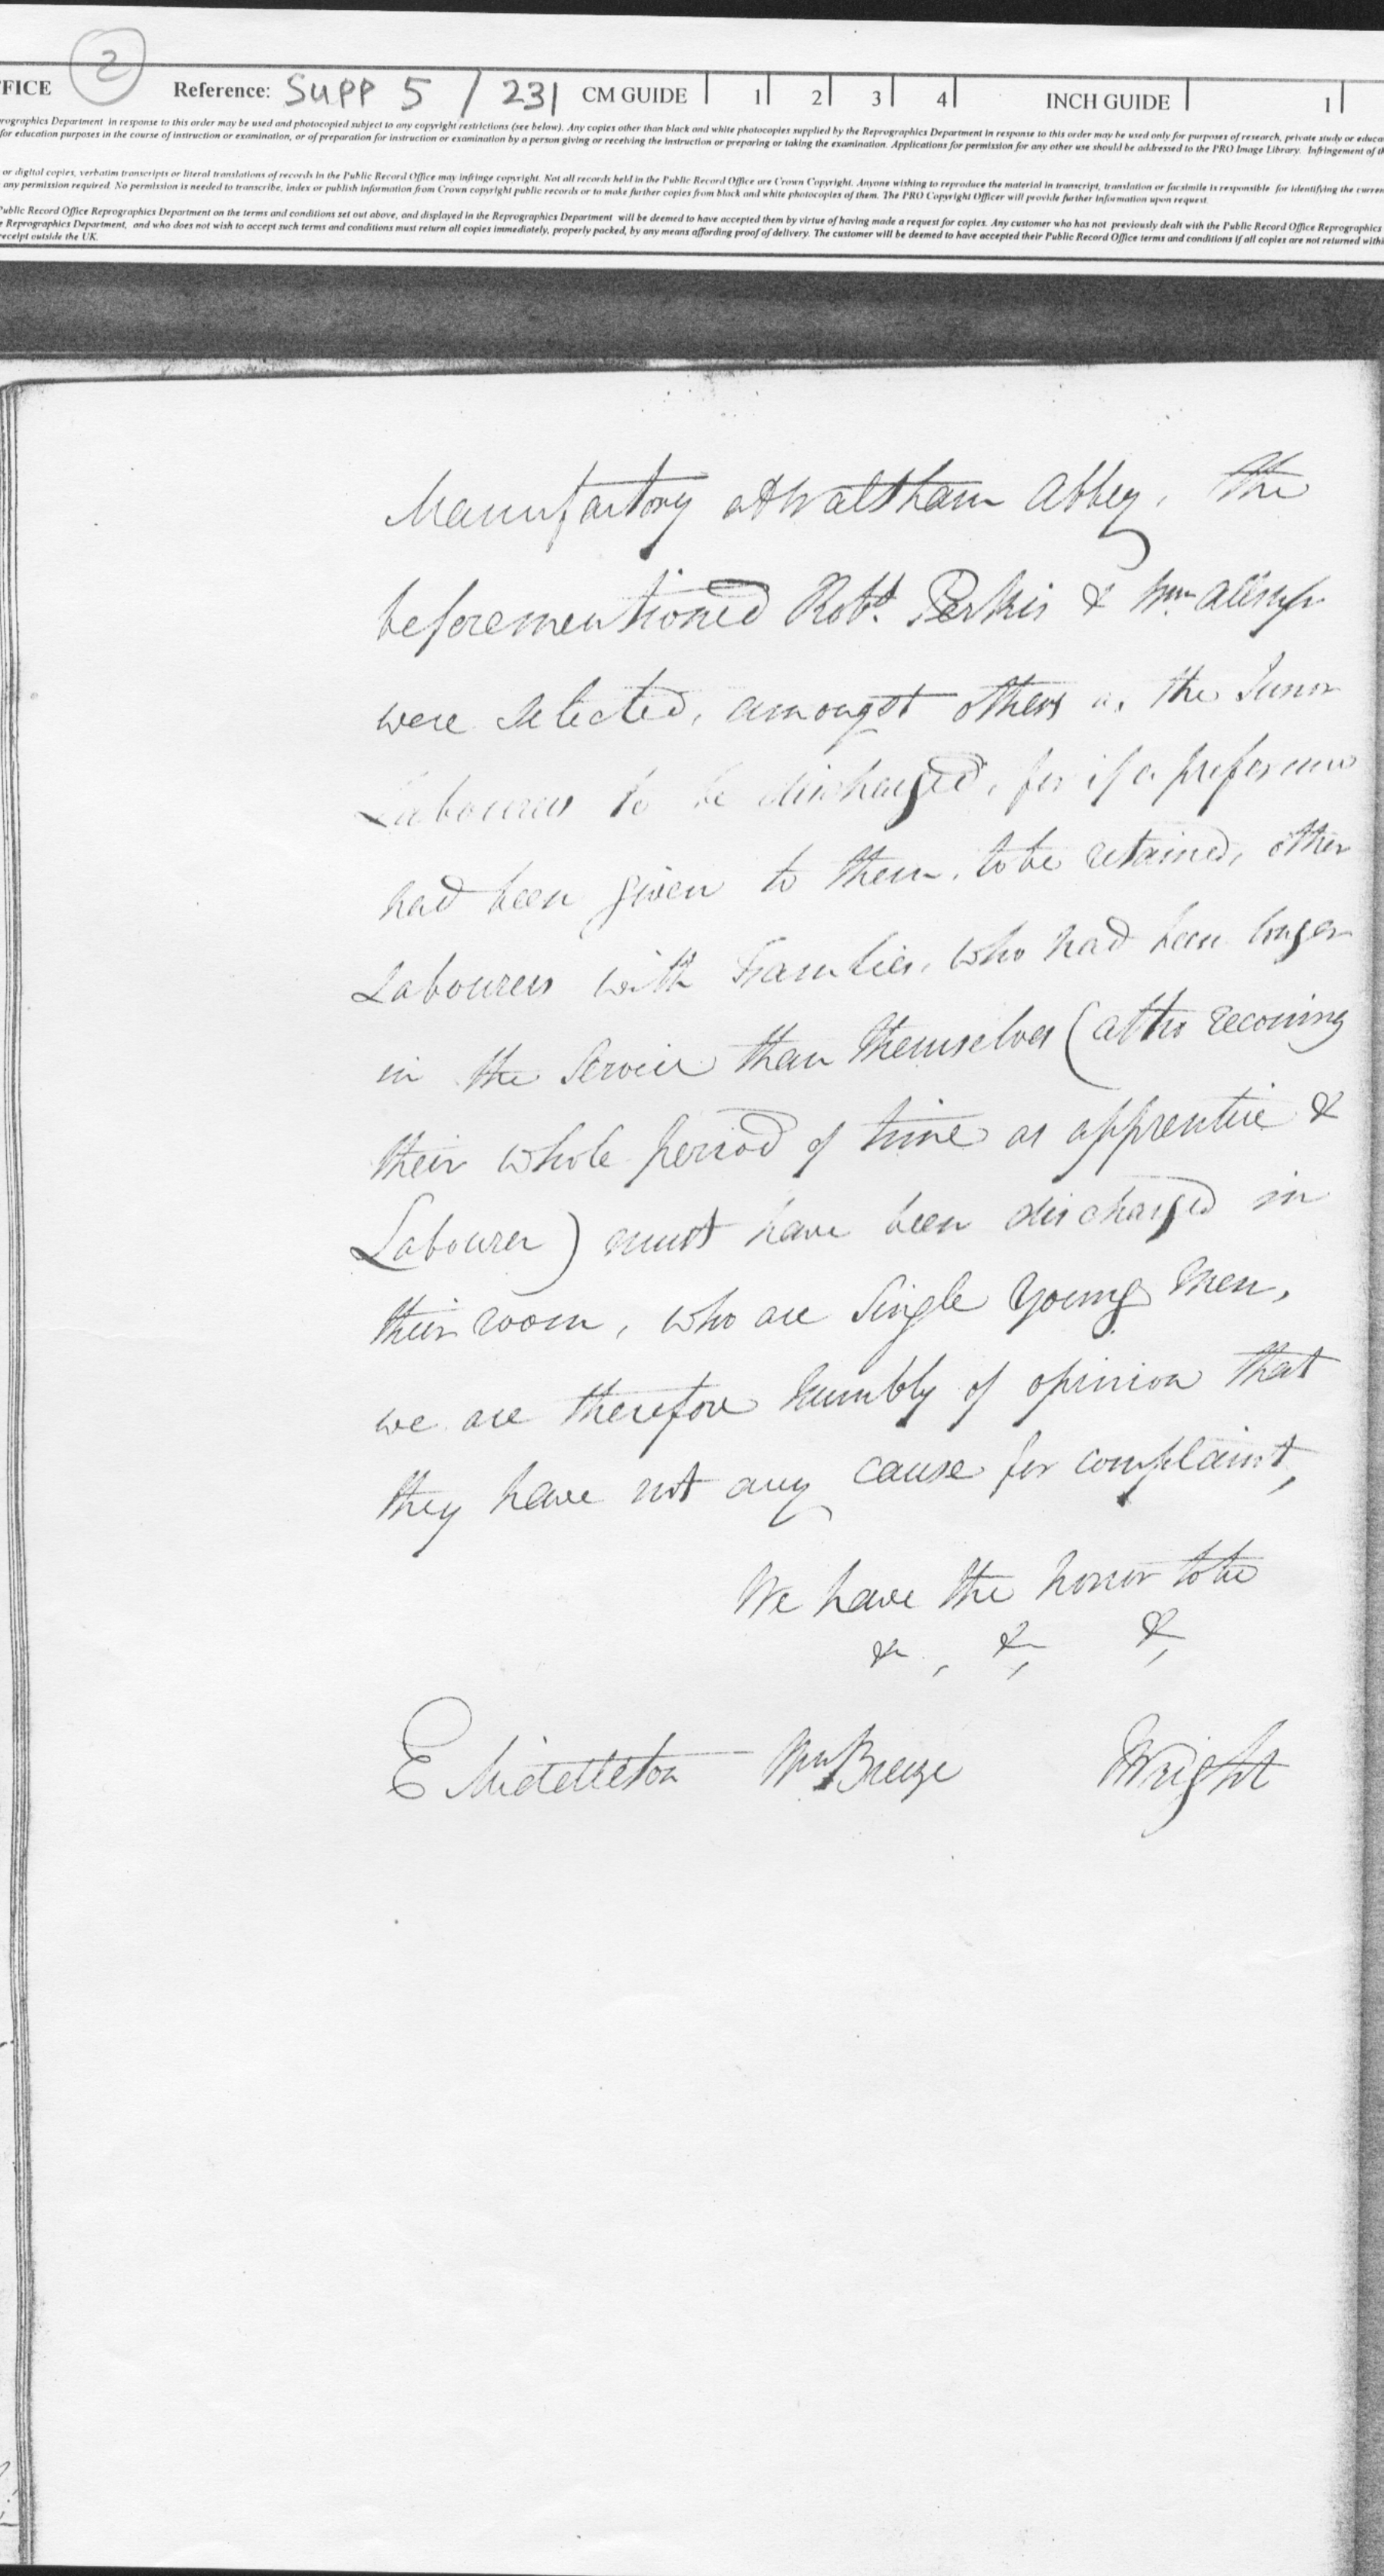 FFICE 2 Reference: SUPP 5 / 231 CM GUIDE 1 2 3 4 INCH GUIDE 1
rographics Department in response to this order may be used and photocopied subject to any copyright restrictions (see below). Any copies other than black and white photocopies supplied by the Reprographics Department in response to this order may be used only for purposes of research, private study or educa
for education purposes in the course of instruction or examination, or of preparation for instruction or examination by a person giving or receiving the instruction or preparing or taking the examination. Applications for permission for any other use should be addressed to the PRO Image Library. Infringement of th
or digital copies, verbatim transcripts or literal translations of records in the Public Record Office may infringe copyright. Not all records held in the Public Record Office are Crown Copyright. Anyone wishing to reproduce the material in transcript, translation or facsimile is responsible for identifying the curren
any permission required. No permission is needed to transcribe, index or publish information from Crown copyright public records or to make further copies from black and white photocopies of them. The PRO Copyright Officer will provide further information upon request.
Public Record Office Reprographics Department on the terms and conditions set out above, and displayed in the Reprographics Department will be deemed to have accepted them by virtue of having made a request for copies. Any customer who has not previously dealt with the Public Record Office Reprographics
Reprographics Department, and who does not wish to accept such terms and conditions must return all copies immediately, properly packed, by any means affording proof of delivery. The customer will be deemed to have accepted their Public Record Office terms and conditions if all copies are not returned withi
receipt outside the UK.
Manufactory at Waltham Abbey, the
beforementioned Robt. Perkis & Wm.
were selected, amongst others as the Junor
Labourers to be discharged, for if a preference
had been given to them, to be retained, other
Labourers with Families, who had been longer
in the Service than themselves (altho reconing
their whole period of time as apprentice &
Labourer) must have been discharged in
their room, who are Single Young Men,
we are therefore humbly of opinion that
they have not any cause for complaint,
We have the honor to be
&c, &c, &c,
E Middleton Wm Breeze Wright